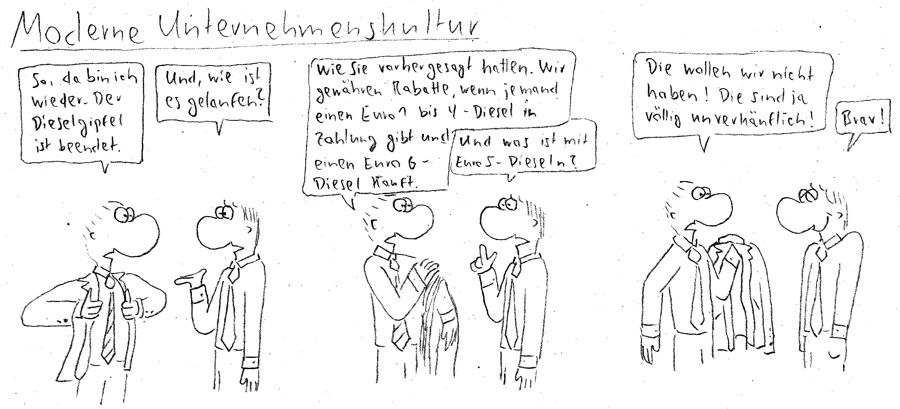 Moderne Unternehmenskultur
So, da bin ich
wieder. Der
Dieselgipfel
ist beendet.
Und, wie ist
es gelaufen?
Wie Sie vorhergesagt hatten. Wir
gewähren Rabatte, wenn jemand
einen Euro 1 bis 4 - Diesel in
Zahlung gibt und
einen Euro 6 -
Diesel kauft.
Und was ist mit
Euro 5 - Dieseln?
Die wollen wir nicht
haben! Die sind ja
völlig unverkäuflich!
Brav!